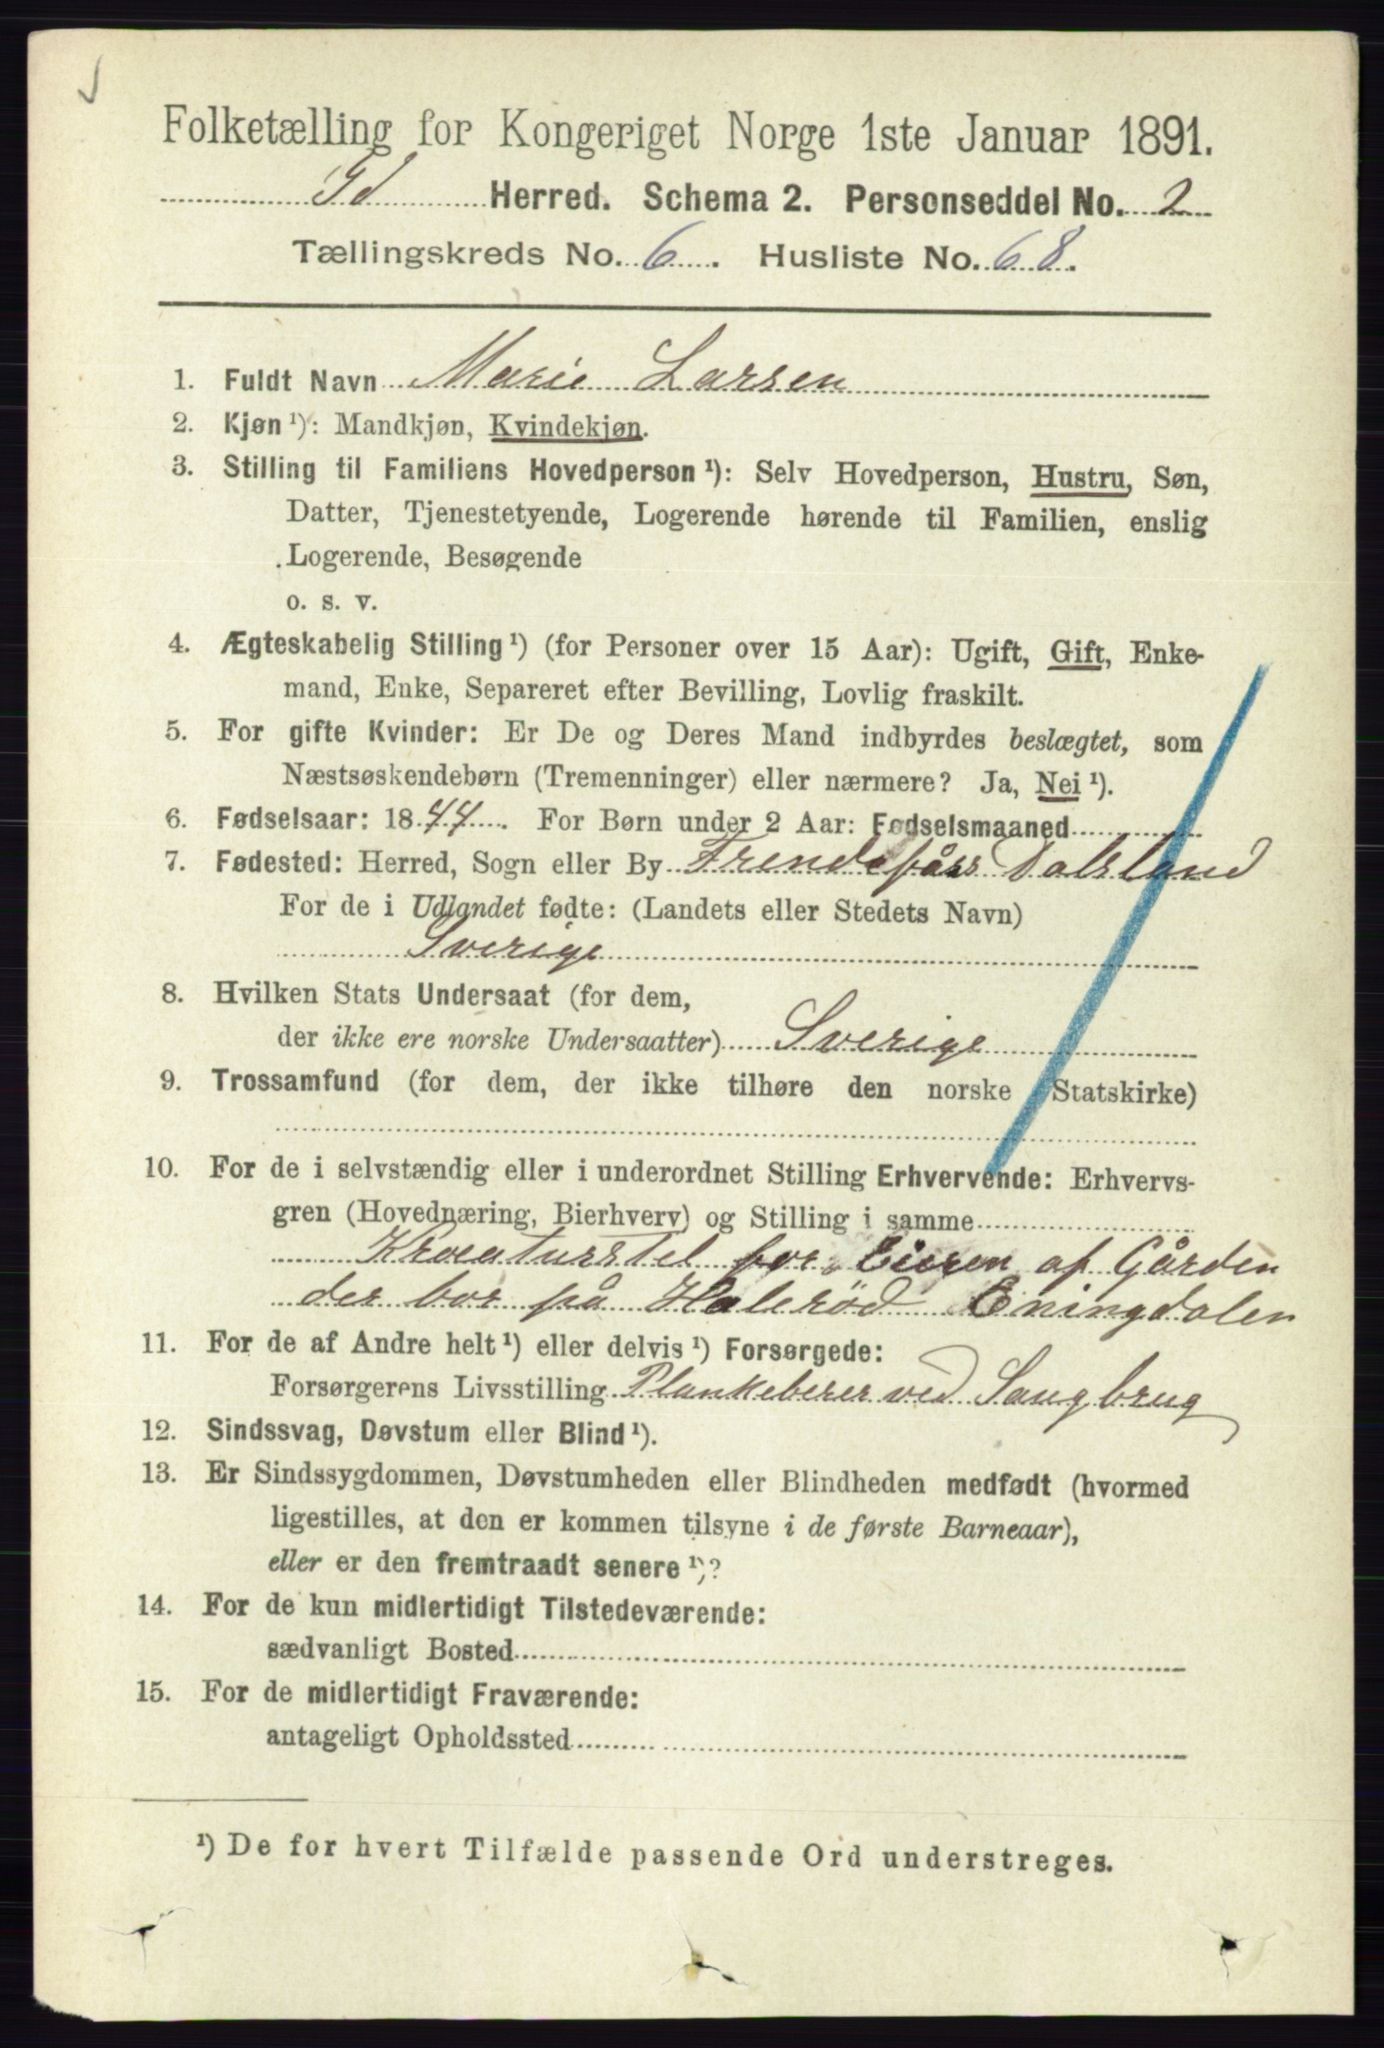 Folketælling for Kongeriget Norge 1ste Januar 1891.
Id Herred. Schema 2. Personseddel No. 2
Tællingskreds No. 6. Husliste No. 68.
1. Fuldt Navn Marie Larsen
2. Kjøn ¹): Mandkjøn, Kvindekjøn.
3. Stilling til Familiens Hovedperson ¹): Selv Hovedperson, Hustru, Søn,
Datter, Tjenestetyende, Logerende hørende til Familien, enslig
Logerende, Besøgende
o. s. v.
4. Ægteskabelig Stilling ¹) (for Personer over 15 Aar): Ugift, Gift, Enke-
mand, Enke, Separeret efter Bevilling, Lovlig fraskilt.
5. For gifte Kvinder: Er De og Deres Mand indbyrdes beslægtet, som
Næstsøskendebørn (Tremenninger) eller nærmere? Ja, Nei ¹).
6. Fødselsaar: 1844. For Børn under 2 Aar: Fødselsmaaned
7. Fødested: Herred, Sogn eller By Frendefårs Dalsland
For de i Udlandet fødte: (Landets eller Stedets Navn)
Sverige
8. Hvilken Stats Undersaat (for dem,
der ikke ere norske Undersaatter) Sverige
9. Trossamfund (for dem, der ikke tilhøre den norske Statskirke)
10. For de i selvstændig eller i underordnet Stilling Erhvervende: Erhvervs-
gren (Hovednæring, Bierhverv) og Stilling i samme
Kreaturstel for Eieren af Gården
der bor på Holerød Eningdalen
11. For de af Andre helt ¹) eller delvis ¹) Forsørgede:
Forsørgerens Livsstilling Plankeberer ved Saugbrug
12. Sindssvag, Døvstum eller Blind ¹).
13. Er Sindssygdommen, Døvstumheden eller Blindheden medfødt (hvormed
ligestilles, at den er kommen tilsyne i de første Barneaar),
eller er den fremtraadt senere ¹)?
14. For de kun midlertidigt Tilstedeværende:
sædvanligt Bosted
15. For de midlertidigt Fraværende:
antageligt Opholdssted
¹) De for hvert Tilfælde passende Ord understreges.